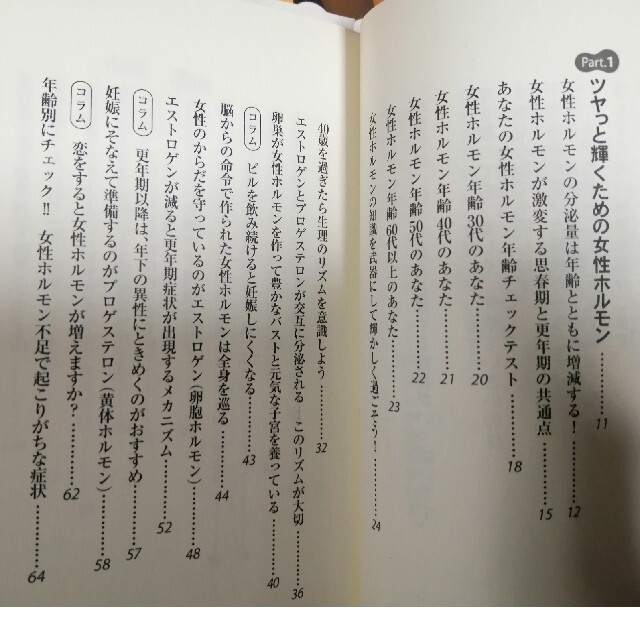 Part.1
ツヤっと輝くための女性ホルモン………11
女性ホルモンの分泌量は年齢とともに増減する！………12
女性ホルモンが激変する思春期と更年期の共通点………15
あなたの女性ホルモン年齢チェックテスト………18
女性ホルモン年齢30代のあなた………20
女性ホルモン年齢40代のあなた………21
女性ホルモン年齢50代のあなた………22
女性ホルモン年齢60代以上のあなた………23
女性ホルモンの知識を武器にして輝かしく過ごそう！………24
40歳を過ぎたら生理のリズムを意識しよう………32
エストロゲンとプロゲステロンが交互に分泌される このリズムが大切………36
卵巣が女性ホルモンを作って豊かなバストと元気な子宮を養っている………40
コラム ピルを飲み続けると妊娠しにくくなる………43
脳からの命令で作られた女性ホルモンは全身を巡る………44
女性のからだを守っているのがエストロゲン（卵胞ホルモン）………48
エストロゲンが減ると更年期症状が出現するメカニズム………52
コラム 更年期以降は、年下の異性にときめくのがおすすめ………57
妊娠にそなえて準備するのがプロゲステロン（黄体ホルモン）………58
コラム 恋をすると女性ホルモンが増えますか？………62
年齢別にチェック!! 女性ホルモン不足で起こりがちな症状………64